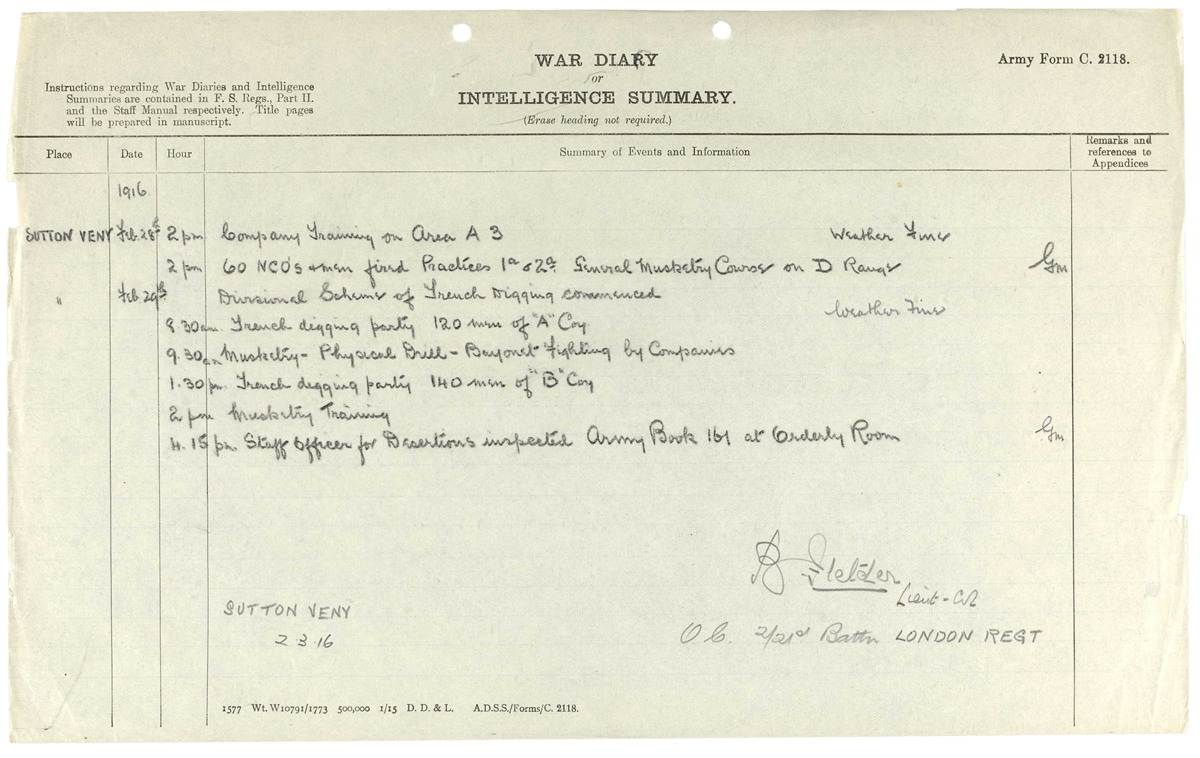 WAR DIARY
or
INTELLIGENCE SUMMARY.
(Erase heading not required.)
Army Form C. 2118.
Instructions regarding War Diaries and Intelligence
Summaries are contained in F. S. Regs., Part II.
and the Staff Manual respectively. Title pages
will be prepared in manuscript.
Place Date Hour Summary of Events and Information Remarks and references to Appendices
1916.
SUTTON VENY Feb. 28th 2 pm Company Training on Area A 3 Weather Fine
2 pm 60 NCO's & men fired Practices 1a & 2a General Musketry Course on D Range Gm
" Feb 29th Divisional Scheme of Trench Digging commenced
Weather Fine
8.30 am. Trench digging party 120 men of "A" Coy.
9.30 am Musketry - Physical Drill - Bayonet Fighting by Companies
1.30 pm. Trench digging party 140 men of "B" Coy
2 pm Musketry Training
4.15 pm. Staff Officer for Desertions inspected Army Book 161 at Orderly Room Gm
Fielder
Lieut-Col
SUTTON VENY
2 3 16
O.C. 2/21st Battn LONDON REGT
1577 Wt. W10791/1773 500,000 1/15 D. D. & L. A.D.S.S./Forms/C. 2118.